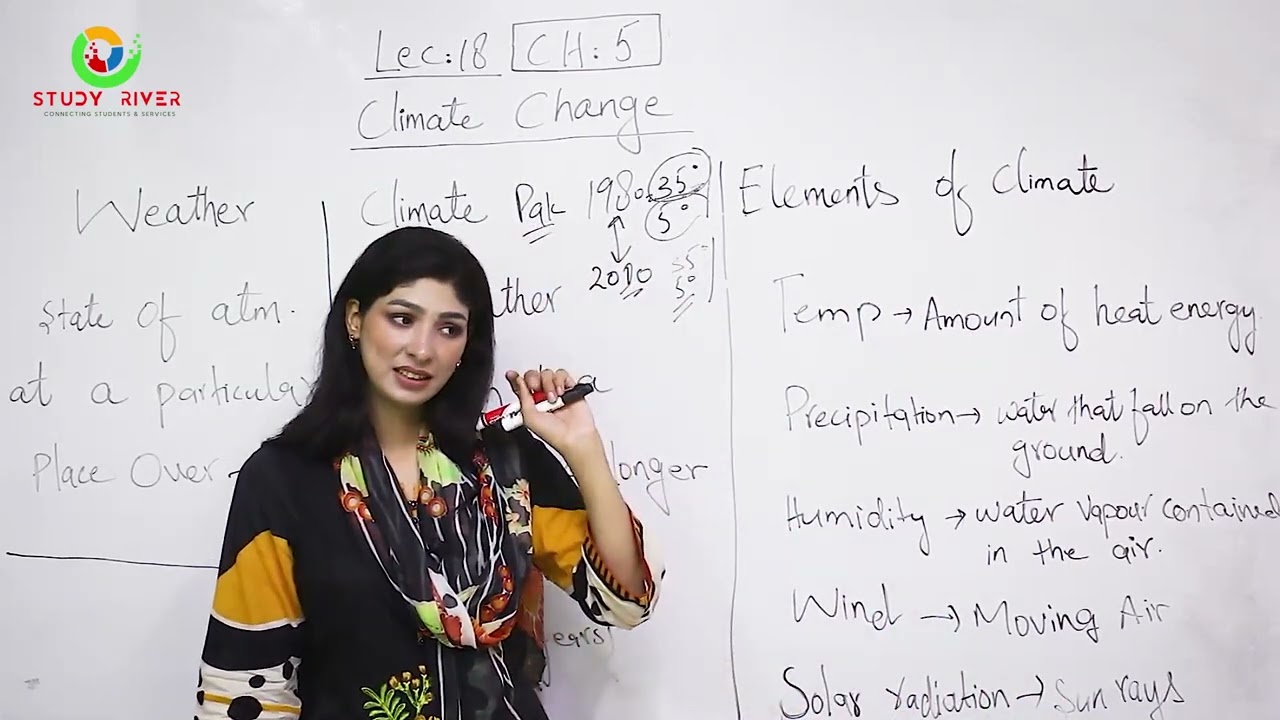 STUDY RIVER
CONNECTING STUDENTS & SERVICES
Lec:18 CH:5
Climate Change
Weather
State of atm.
at a particular
Place Over
Climate Pak 1980 35°
5°
2010 35°
5°
ther
a
longer
ears)
Elements of Climate
Temp → Amount of heat energy.
Precipitation → water that fall on the
ground.
Humidity → water vapour contained
in the air.
Wind → Moving Air
Solar radiation → Sun rays